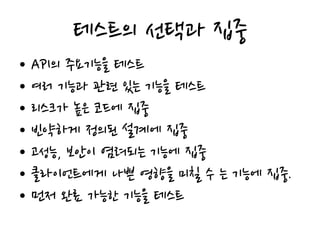 테스트의 선택과 집중
• API의 주요기능을 테스트
• 여러 기능과 관련 있는 기능을 테스트
• 리스크가 높은 코드에 집중
• 빈약하게 정의된 설계에 집중
• 고성능, 보안이 염려되는 기능에 집중
• 클라이언트에게 나쁜 영향을 미칠 수 는 기능에 집중.
• 먼저 완료 가능한 기능을 테스트